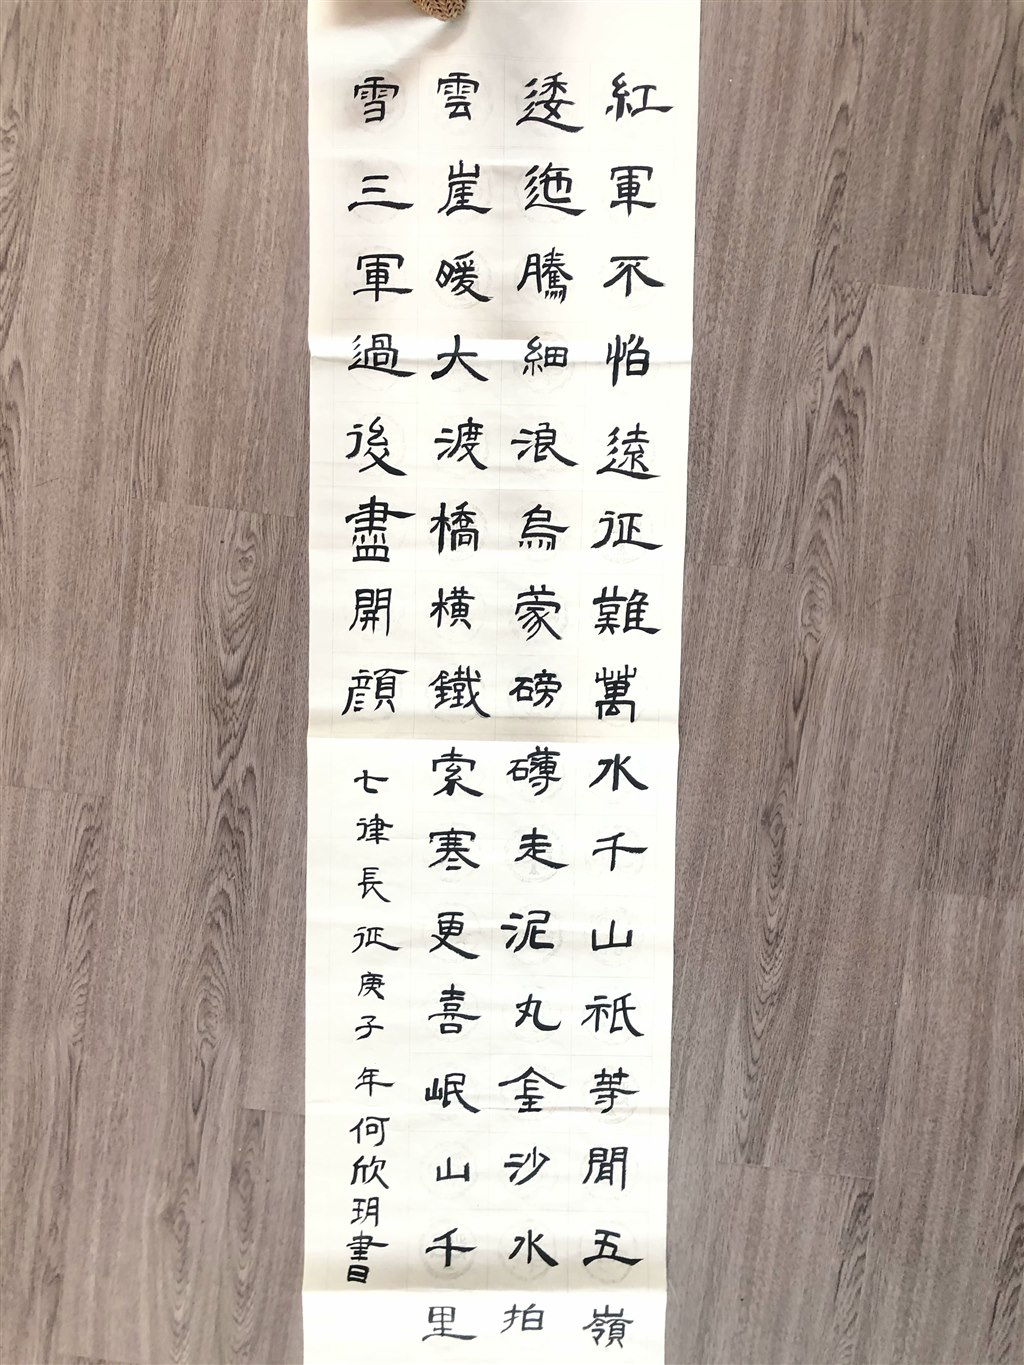 紅軍不怕遠征難萬水千山祇等閒五嶺
逶迤騰細浪烏蒙磅礴走泥丸金沙水拍
雲崖暖大渡橋橫鐵索寒更喜岷山千里
雪三軍過後盡開顏
七律長征庚子年何欣玥書